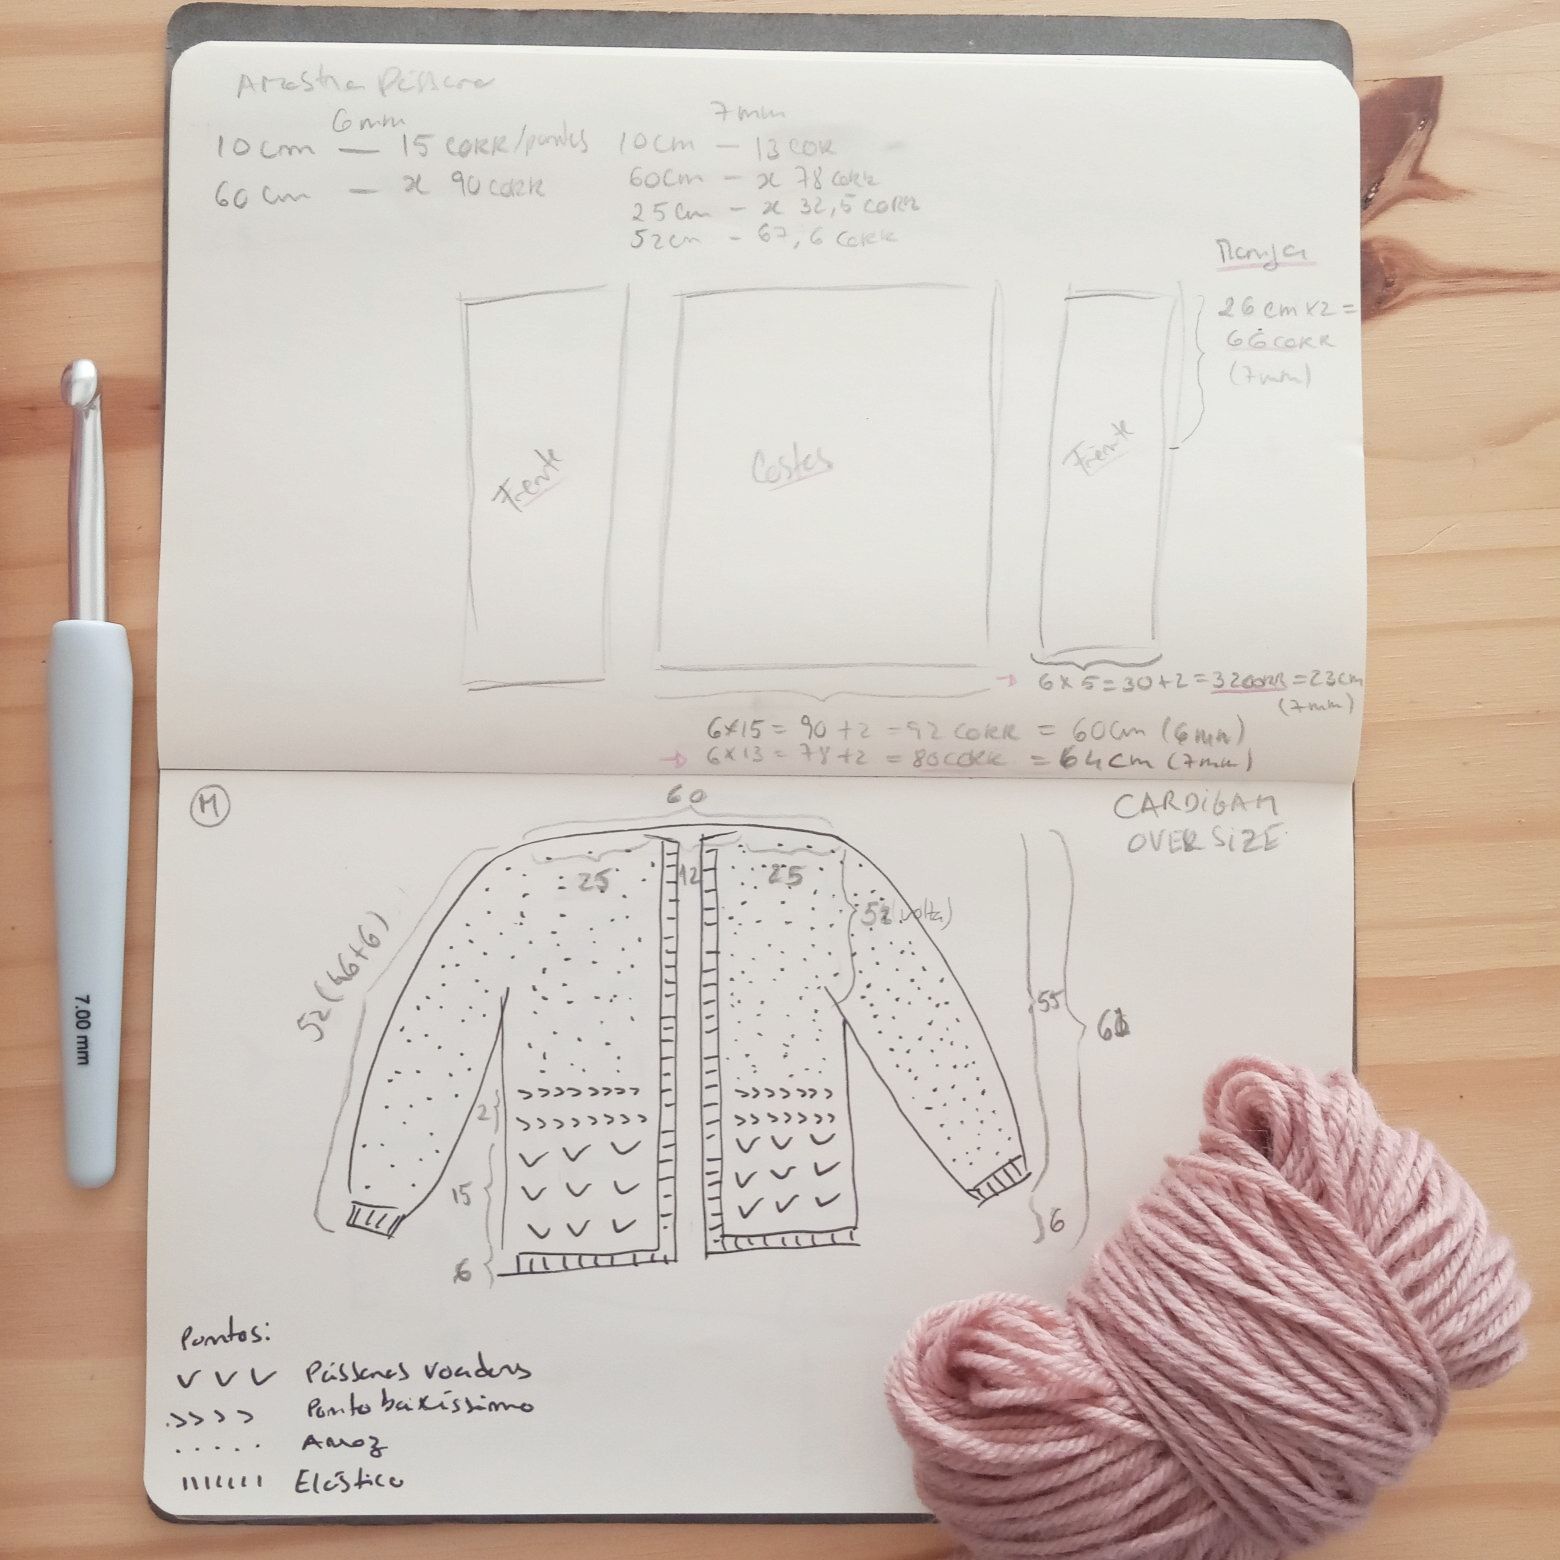 Amostra Pássaro
6mm
10cm — 15 CORR/pontos
60cm — x 90 CORR
7mm
10cm — 13 COR
60cm — x 78 CORR
25cm — x 32,5 CORR
52cm — 67,6 CORR
Manga
26cm x2 =
66 CORR
(7mm)
Frente
Costas
Frente
6x5=30+2=32CORR=23cm
(7mm)
6x15= 90 +2 =92 CORR = 60cm (6mm)
6x13= 78+2 = 80CORR = 64cm (7mm)
M
CARDIGAM
OVERSIZE
60
25
12
25
52(volta)
52(46+6)
55
61
2
15
6
6
Pontos:
Pássaros voadores
Ponto baixíssimo
Arroz
Elástico
7.00 mm